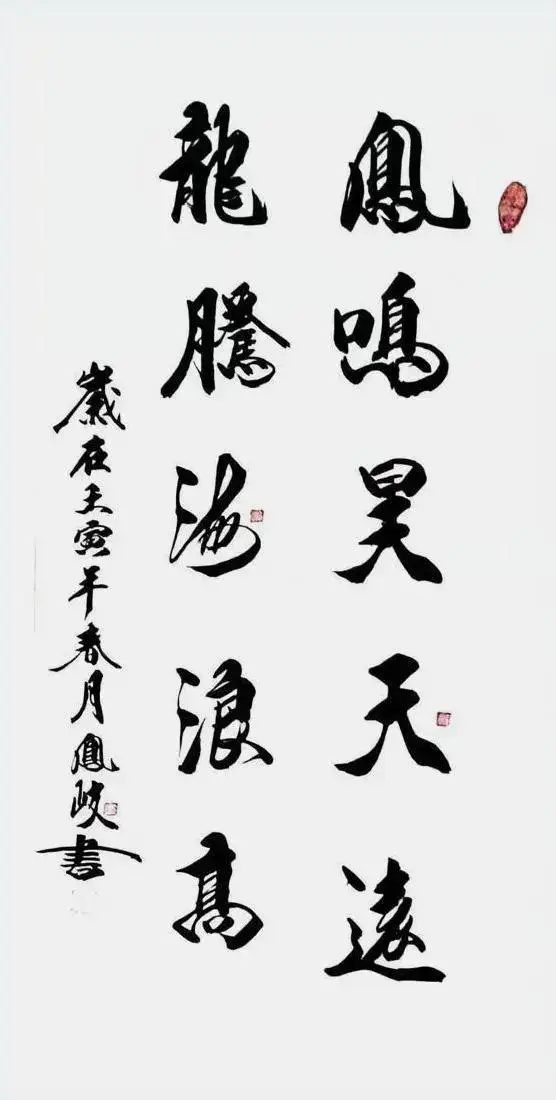 鳳鳴昊天遠
龍騰海浪高
歲在壬寅年春月鳳岐書